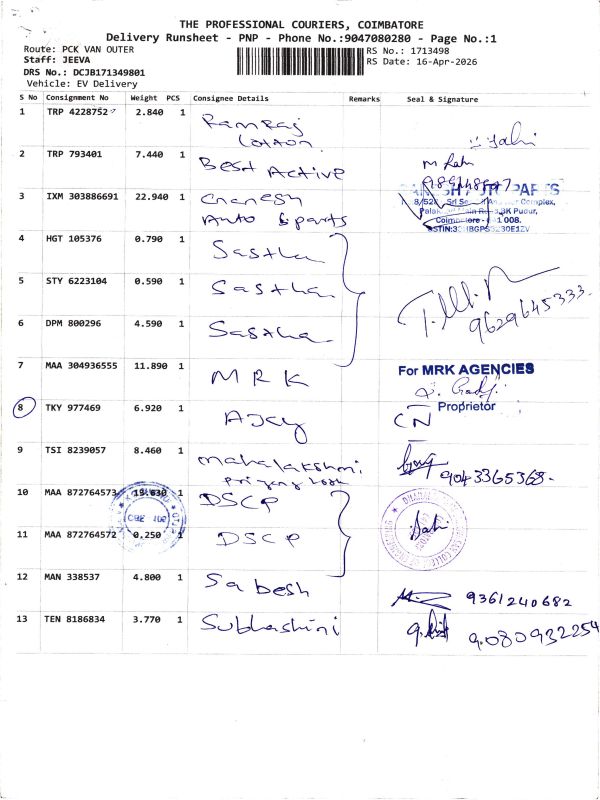 THE PROFESSIONAL COURIERS, COIMBATORE
Delivery Runsheet - PNP - Phone No.:9047080280 - Page No.:1
Route: PCK VAN OUTER
Staff: JEEVA
DRS No.: DCJB171349801
Vehicle: EV Delivery
RS No.: 1713498
RS Date: 16-Apr-2026
S No Consignment No Weight PCS Consignee Details Remarks Seal & Signature
1 TRP 4228752 2.840 1 Ramraj Cotton
2 TRP 793401 7.440 1 Best Active
3 IXM 303886691 22.940 1 Ganesh Auto Sparts
PARTS
Coimbatore
4 HGT 105376 0.790 1 Sastha
5 STY 6223104 0.590 1 Sastha
6 DPM 800296 4.590 1 Sastha
9629645333
7 MAA 304936555 11.890 1 MRK
For MRK AGENCIES
Proprietor
8 TKY 977469 6.920 1 Ajay CN
9 TSI 8239057 8.460 1 Mahalakshmi
9043365368
10 MAA 872764573 19.630 1 DSCP
11 MAA 872764572 0.250 1 DSCP
12 MAN 338537 4.800 1 Sabesh 9361240682
13 TEN 8186834 3.770 1 Subhashini 9080932254